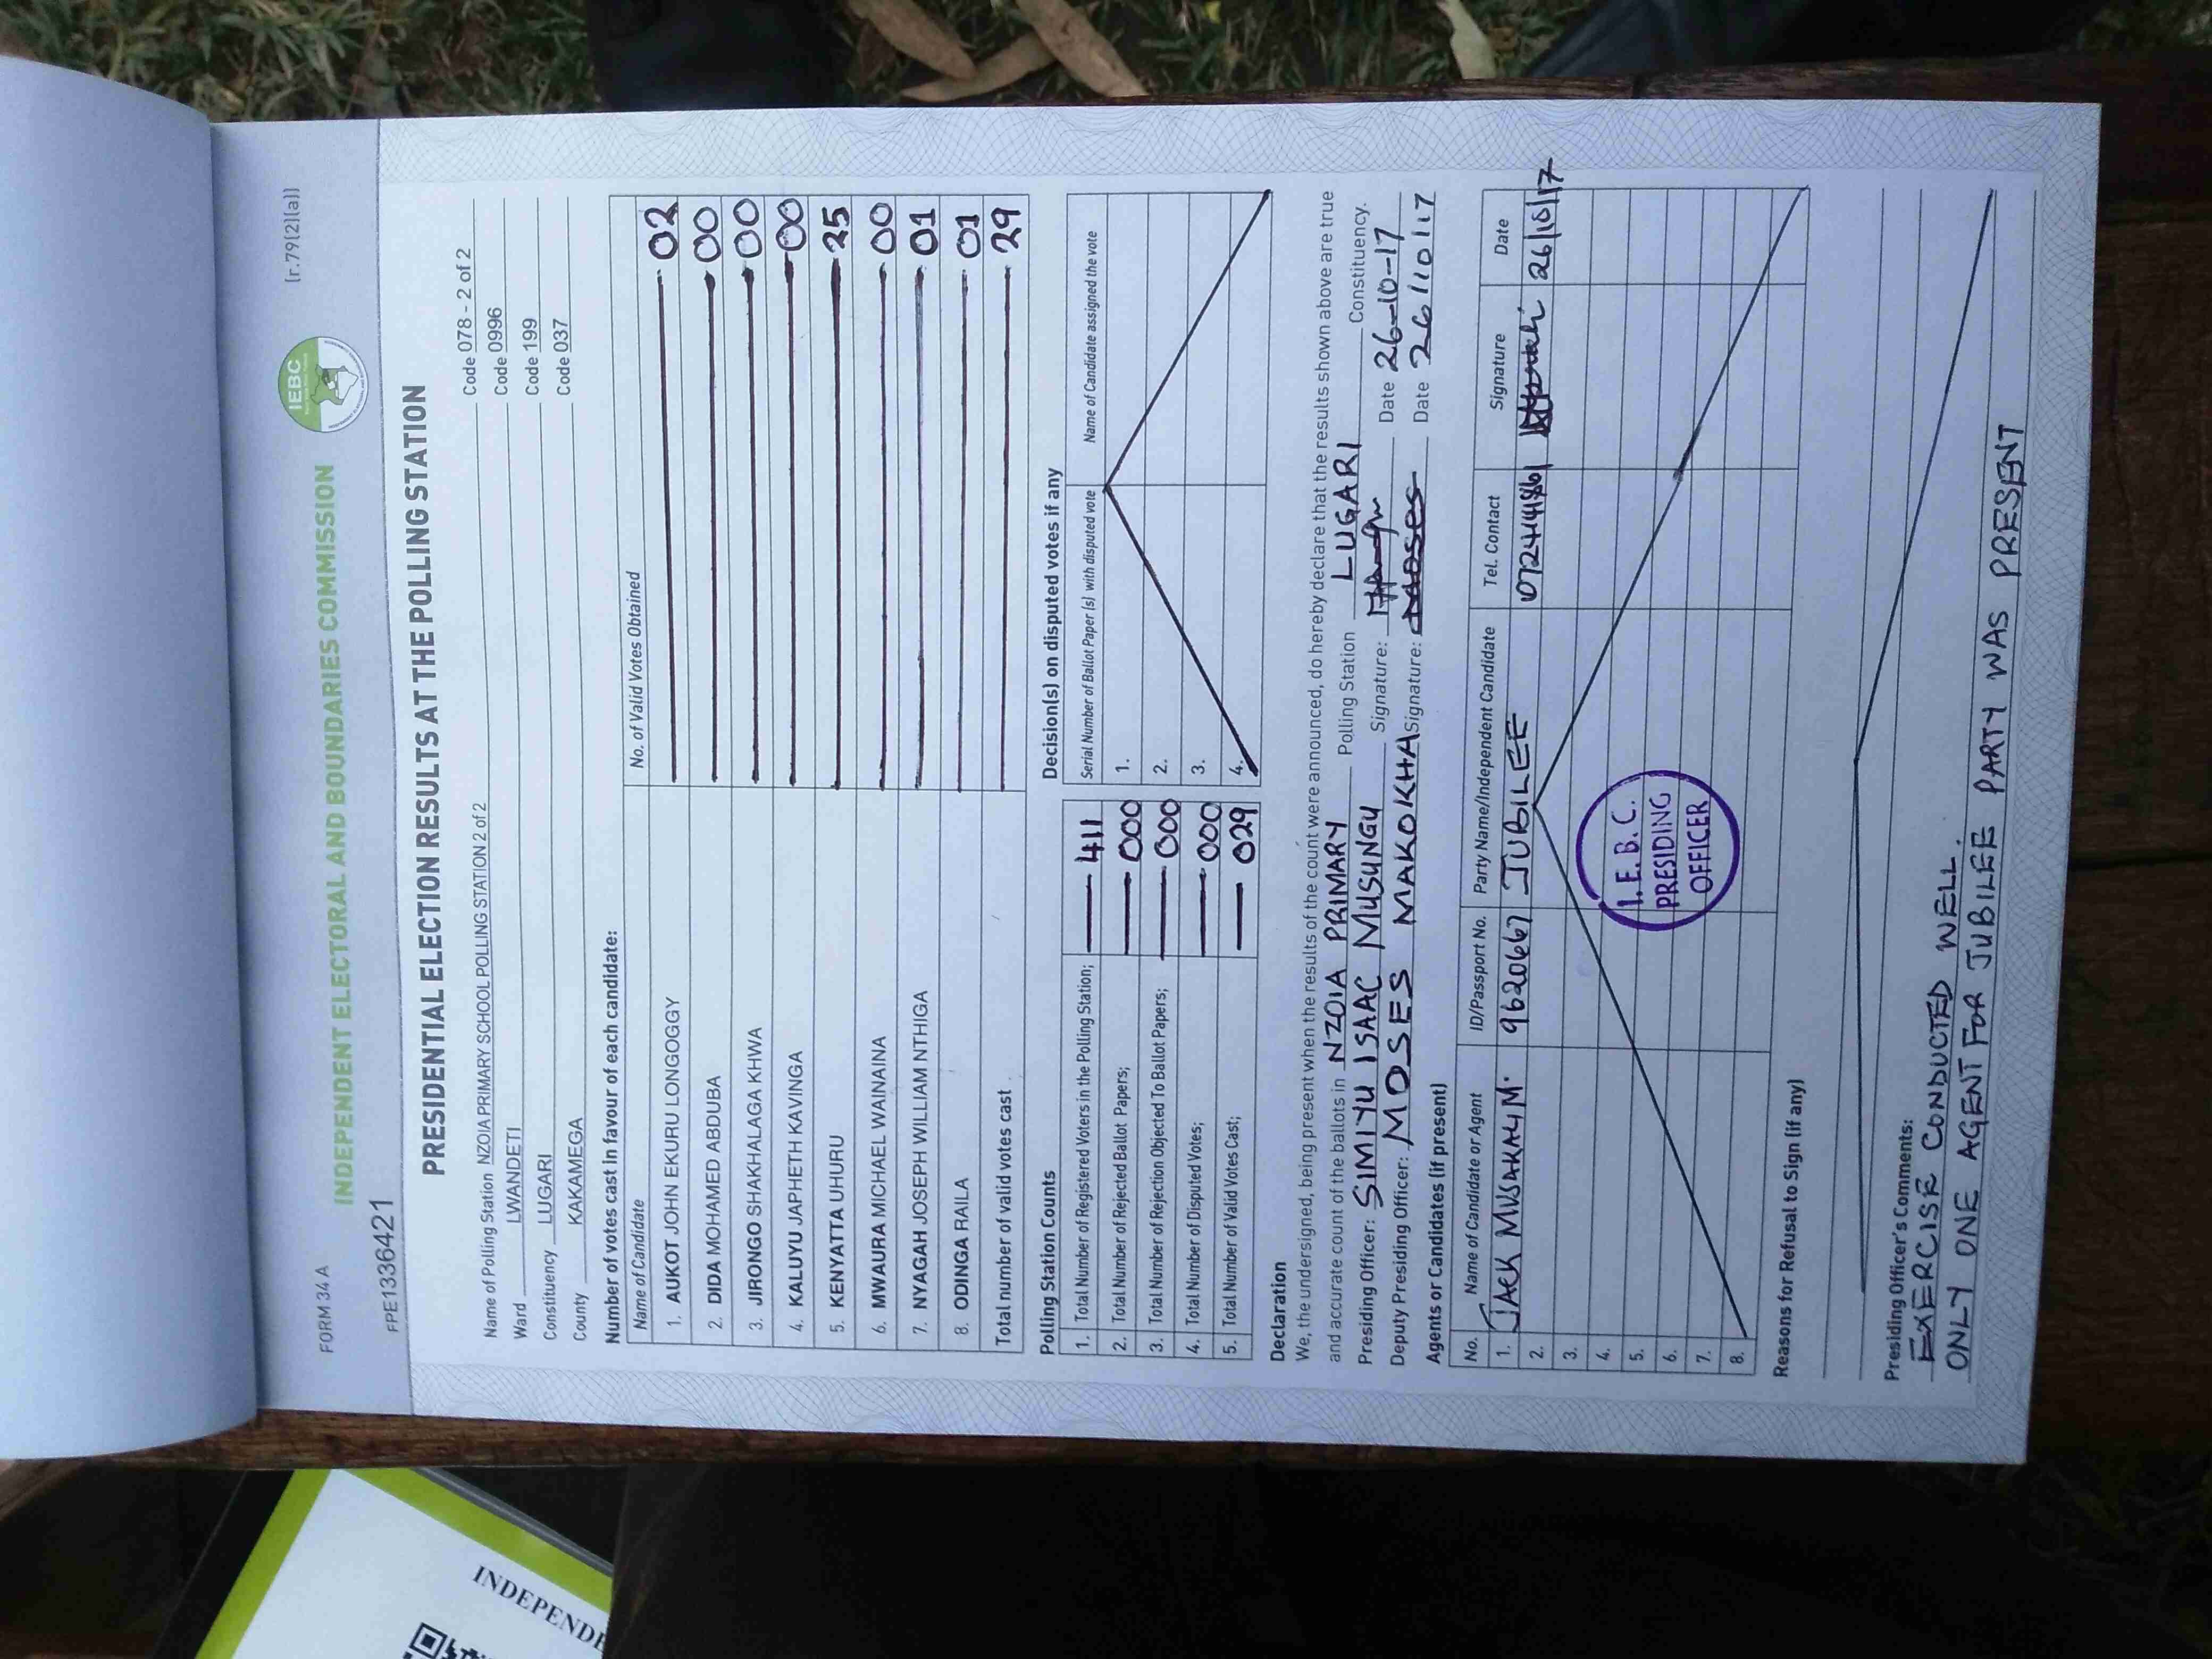 FORM 34 A
(r.79(2)(a))
INDEPENDENT ELECTORAL AND BOUNDARIES COMMISSION
IEBC
FPE1336421
PRESIDENTIAL ELECTION RESULTS AT THE POLLING STATION
Name of Polling Station NZOIA PRIMARY SCHOOL POLLING STATION 2 of 2 Code 078 - 2 of 2
Ward LWANDETI Code 0996
Constituency LUGARI Code 199
County KAKAMEGA Code 037
Number of votes cast in favour of each candidate:
Name of Candidate No. of Valid Votes Obtained
1. AUKOT JOHN EKURU LONGOGGY 02
2. DIDA MOHAMED ABDUBA 00
3. JIRONGO SHAKHALAGA KHWA 00
4. KALUYU JAPHETH KAVINGA 00
5. KENYATTA UHURU 25
6. MWAURA MICHAEL WAINAINA 00
7. NYAGAH JOSEPH WILLIAM NTHIGA 01
8. ODINGA RAILA 01
Total number of valid votes cast 29
Polling Station Counts
1. Total Number of Registered Voters in the Polling Station; 411
2. Total Number of Rejected Ballot Papers; 000
3. Total Number of Rejection Objected To Ballot Papers; 000
4. Total Number of Disputed Votes; 000
5. Total Number of Valid Votes Cast; 029
Decision(s) on disputed votes if any
Serial Number of Ballot Paper (s) with disputed vote Name of Candidate assigned the vote
1.
2.
3.
4.
Declaration
We, the undersigned, being present when the results of the count were announced, do hereby declare that the results shown above are true
and accurate count of the ballots in NZOIA PRIMARY Polling Station LUGARI Constituency.
Presiding Officer: SIMIYU ISAAC MUSUNGU Signature: Date 26-10-17
Deputy Presiding Officer: MOSES MAKOKHA Signature: Moses Date 26/10/17
Agents or Candidates (if present)
No. Name of Candidate or Agent ID/Passport No. Party Name/Independent Candidate Tel. Contact Signature Date
1. JACK MUSAKALI M. 9620667 JUBILEE 26/10/17
2.
3.
4.
5.
6.
7.
8.
I.E.B.C.
PRESIDING
OFFICER
Reasons for Refusal to Sign (if any)
Presiding Officer's Comments:
EXERCISE CONDUCTED WELL.
ONLY ONE AGENT FOR JUBILEE PARTY WAS PRESENT
INDEPENDE